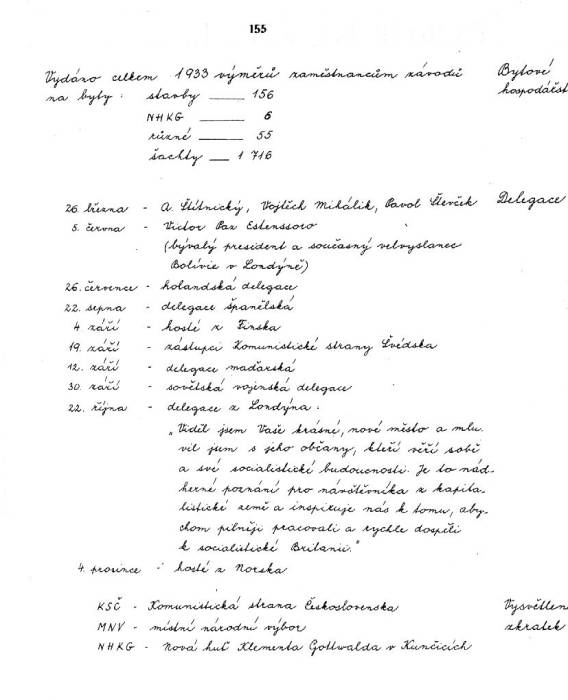 155
Vydáno celkem 1933 výměrů zaměstnancům závodů Bytové
na byty : stavby 156 hospodářst
NHKG 6
různé 55
šachty 1 716
26. března - A. Štítnický, Vojtěch Mihálik, Pavol Števček Delegace
5. června - Victor Paz Estenssoro
(bývalý president a současný velvyslanec
Bolívie v Londýně)
26. července - holandská delegace
22. srpna - delegace španělská
4. září - hosté z Finska
19. září - zástupci Komunistické strany Švédska
12. září - delegace maďarská
30. září - sovětská vojenská delegace
22. října - delegace z Londýna :
„Viděl jsem Vaše krásné, nové město a mlu-
vil jsem s jeho občany, kteří věří sobě
a své socialistické budoucnosti. Je to nád-
herné poznání pro návštěvníka z kapita-
listické země a inspiruje nás k tomu, aby-
chom pilněji pracovali a rychle dospěli
k socialistické Britanii."
4. prosince - hosté z Norska
KSČ - Komunistická strana Československa Vysvětlen
MNV - místní národní výbor zkratek
NHKG - Nová huť Klementa Gottwalda v Kunčicích